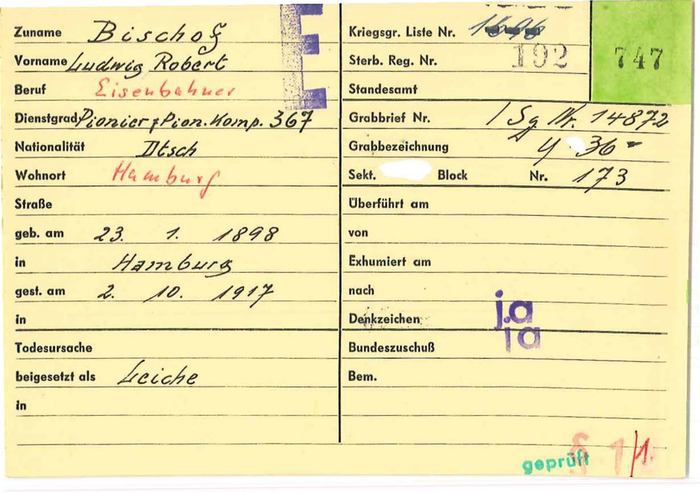 Zuname Bischof
Vorname Ludwig Robert
Beruf Eisenbahner
Dienstgrad Pionier, Pion. Komp. 367
Nationalität Dtsch
Wohnort Hamburg
Straße
geb. am 23. 1. 1898
in Hamburg
gest. am 2. 10. 1917
in
Todesursache
beigesetzt als Leiche
in
E
Kriegsgr. Liste Nr. 1696
Sterb. Reg. Nr. 192
747
Standesamt
Grabbrief Nr. / Sg Nr. 14872
Grabbezeichnung Y 36
Sekt. Block Nr. 173
Überführt am
von
Exhumiert am
nach
Denkzeichen ja
Bundeszuschuß ja
Bem.
geprüft § 1 /1.